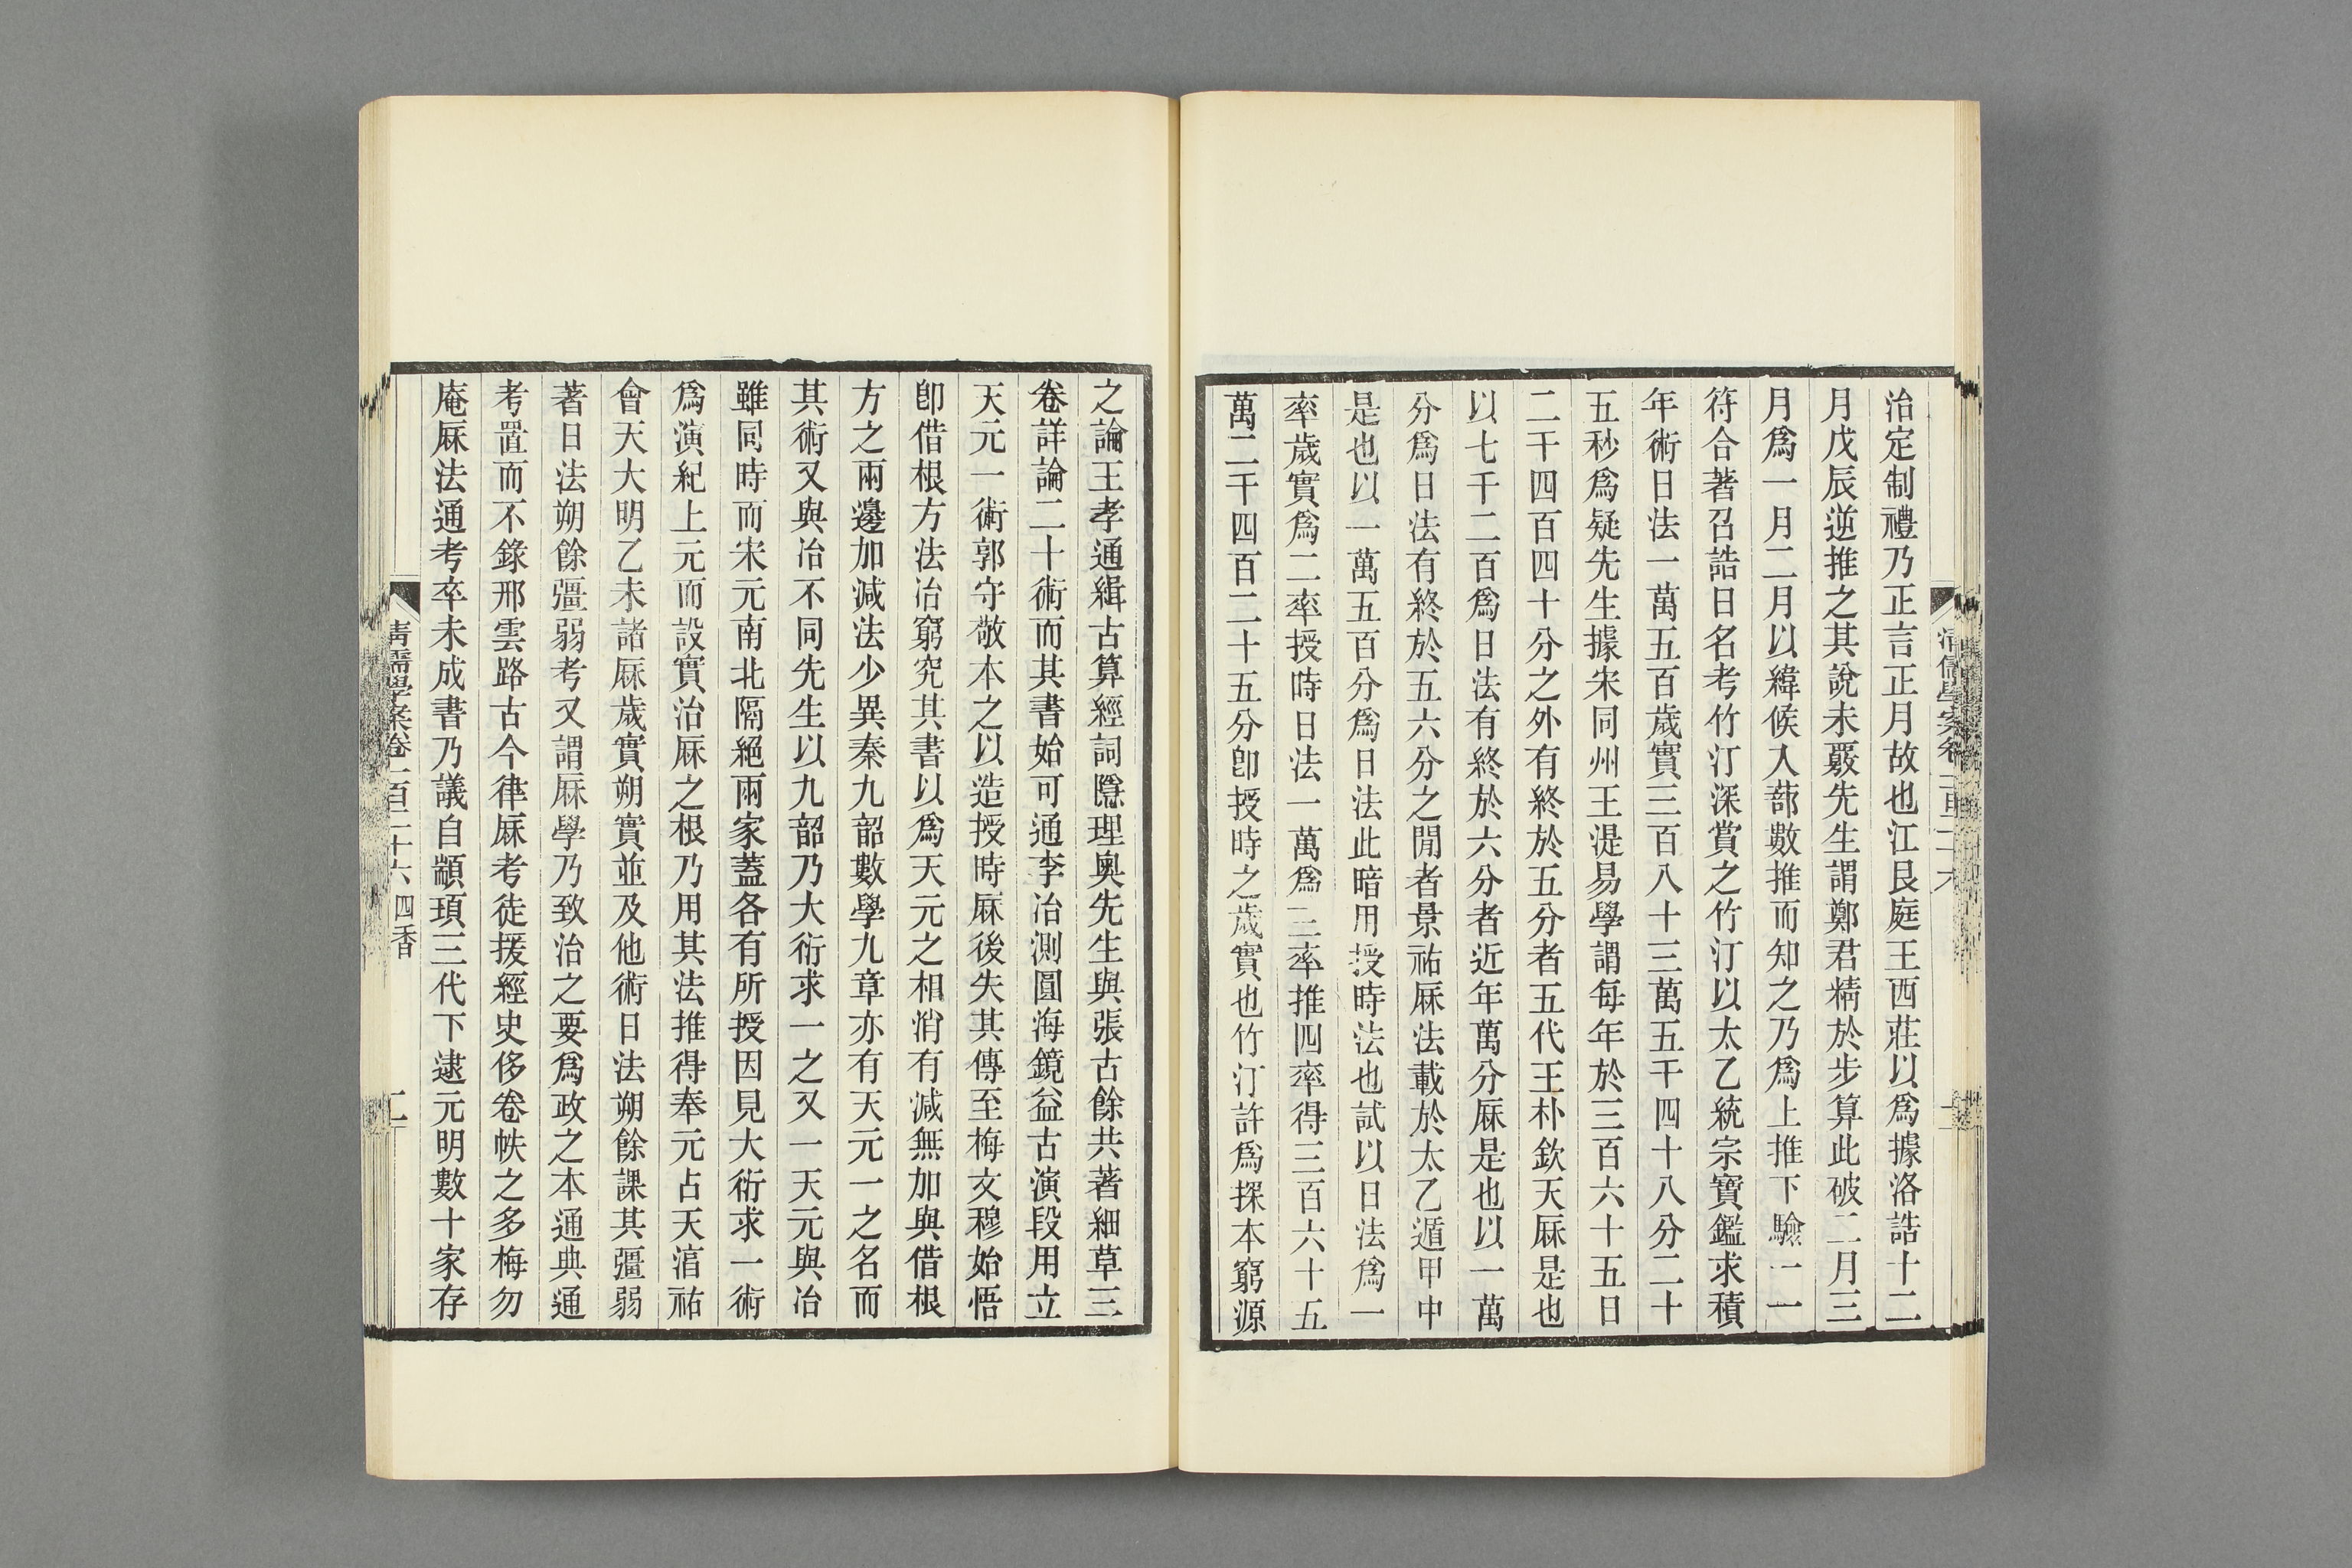 治定制禮乃正言正月故也江艮庭王西莊以爲據洛誥十二
月戊辰逆推之其說未覈先生謂鄭君精於步算此破二月三
月爲一月二月以緯候入蔀數推而知之乃爲上推下驗一一
符合著召誥日名考竹汀深賞之竹汀以太乙統宗寶鑑求積
年術日法一萬五百歲實三百八十三萬五千四十八分二十
五秒爲疑先生據宋同州王湜易學謂每年於三百六十五日
二千四百四十分之外有終於五分者五代王朴欽天厤是也
以七千二百爲日法有終於六分者近年萬分厤是也以一萬
分爲日法有終於五六分之閒者景祐厤法載於太乙遁甲中
是也以一萬五百分爲日法此暗用授時法也試以日法爲一
率歲實爲二率授時日法一萬爲三率推四率得三百六十五
萬二千四百二十五分卽授時之歲實也竹汀許爲探本窮源
之論王孝通緝古算經詞隱理奧先生與張古餘共著細草三
卷詳論二十術而其書始可通李冶測圓海鏡益古演段用立
天元一術郭守敬本之以造授時厤後失其傳至梅文穆始悟
卽借根方法冶窮究其書以爲天元之相消有減無加與借根
方之兩邊加減法少異秦九韶數學九章亦有天元一之名而
其術又與冶不同先生以九韶乃大衍求一之又一天元與冶
雖同時而宋元南北隔絕兩家蓋各有所授因見大衍求一術
爲演紀上元而設實治厤之根乃用其法推得奉元占天淳祐
會天大明乙未諸厤歲實朔實並及他術日法朔餘課其彊弱
著日法朔餘彊弱考又謂厤學乃致治之要爲政之本通典通
考置而不錄邢雲路古今律厤考徒援經史侈卷帙之多梅勿
庵厤法通考卒未成書乃議自顓頊三代下逮元明數十家存
清儒學案卷一百二十六 四香 二